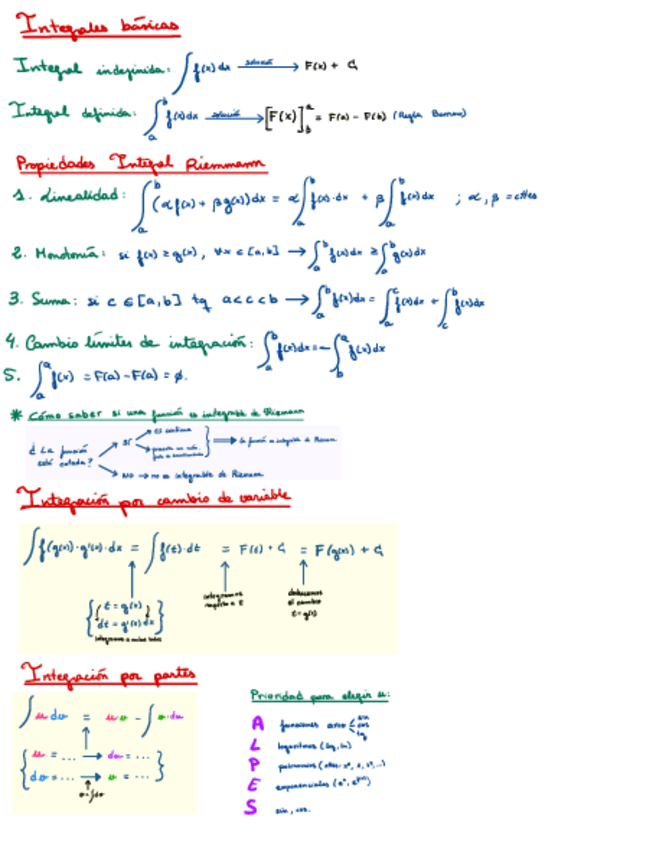 Integrales básicas
Integral indefinida: ∫ f(x) dx —solución→ F(x) + C
Integral definida: ∫_a^b f(x) dx —solución→ [F(x)]_b^a = F(a) - F(b) (Regla Barrow)
Propiedades Integral Riemmann
1. Linealidad: ∫_a^b (α f(x) + β g(x)) dx = α ∫_a^b f(x)·dx + β ∫_a^b f(x) dx ; α, β = cttes
2. Monotonía: si f(x) ≥ g(x), ∀x ∈ [a,b] → ∫_a^b f(x) dx ≥ ∫_a^b g(x) dx
3. Suma: si c ∈ [a,b] tq a<c<b → ∫_a^b f(x) dx = ∫_a^c f(x) dx + ∫_c^b f(x) dx
4. Cambio límites de integración: ∫_a^b f(x) dx = - ∫_b^a f(x) dx
5. ∫_a^a f(x) = F(a) - F(a) = ∅.
* Cómo saber si una función es integrable de Riemann
¿ La función está acotada?
SÍ
es continua
presenta un
→ la función es integrable de Riemann
NO → no es integrable de Riemann
Integración por cambio de variable
∫ f(g(x))·g'(x)·dx = ∫ f(t)·dt = F(t) + C = F(g(x)) + C
{ t = g(x)
dt = g'(x) dx }
integramos a ambos lados
integramos respecto a t
deshacemos el cambio t = g(x)
Integración por partes
∫ u dv = u v - ∫ v·du
{ u = ... → du = ...
dv = ... → v = ... }
v = ∫ dv
Prioridad para elegir u:
A funciones arco < sin cos tg
L logaritmos (log, ln)
P polinomios
E exponenciales
S sin, cos.